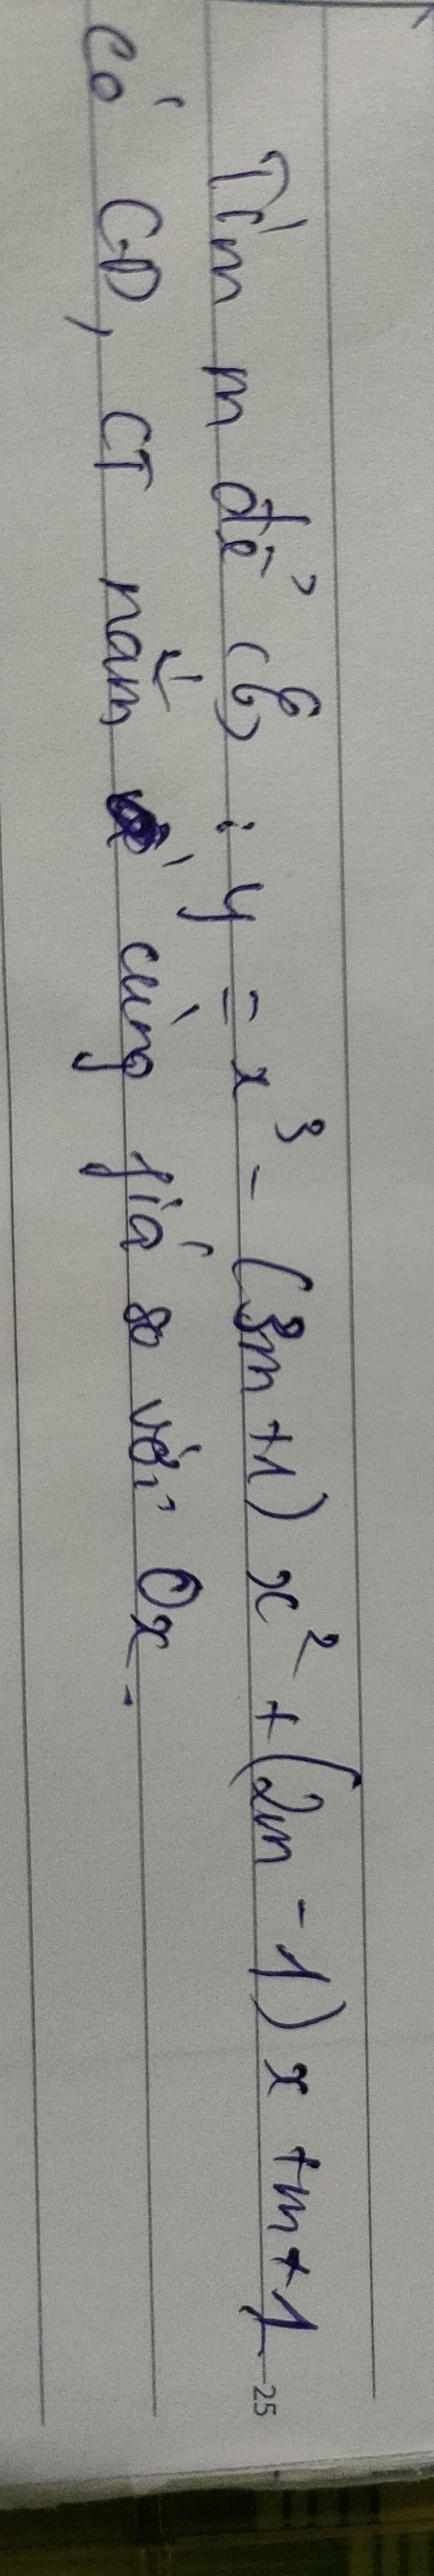 Tìm m để (C) : y = x³ - (3m+1) x² + (2m - 1) x + m + 1
25
có CĐ, CT nằm cùng fía so với Ox.